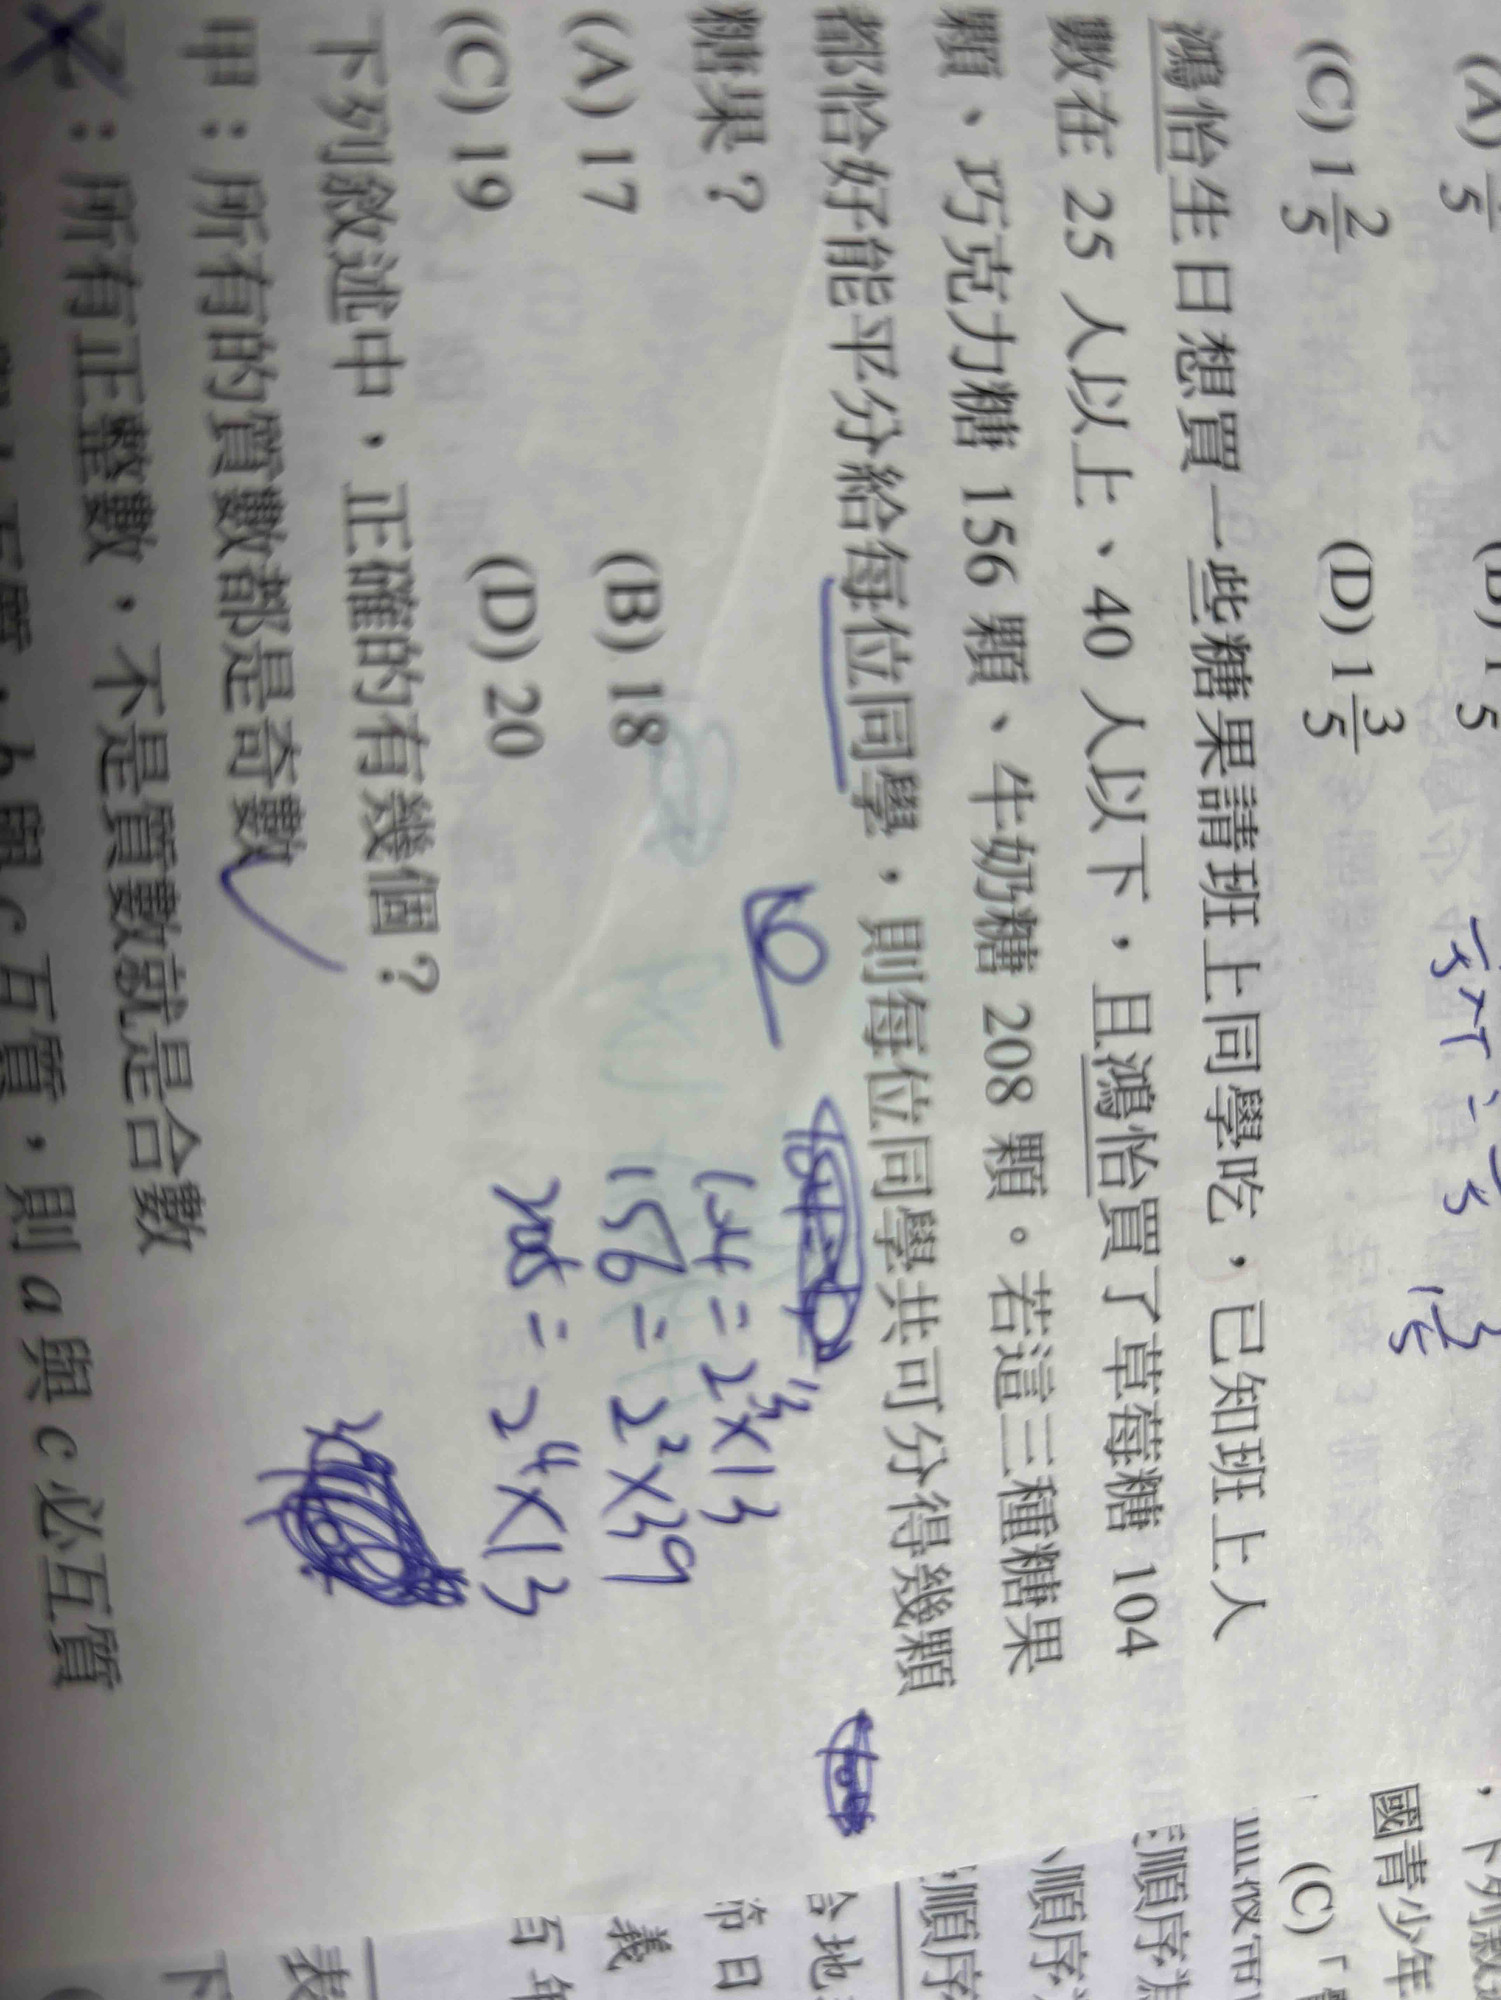 (C) 1 2/5
(D) 1 3/5
鴻怡生日想買一些糖果請班上同學吃，已知班上人
數在 25 人以上、40 人以下，且鴻怡買了草莓糖 104
顆、巧克力糖 156 顆、牛奶糖 208 顆。若這三種糖果
都恰好能平分給每位同學，則每位同學共可分得幾顆
糖果？
(A) 17
(B) 18
(C) 19
(D) 20
104 = 2³×13
156 = 2²×39
208 = 2⁴×13
下列敘述中，正確的有幾個？
甲：所有的質數都是奇數
乙：所有正整數，不是質數就是合數
b與c互質，則a與c必互質
國青少年
(C)「
順序
順序
順序
節日
義
百年